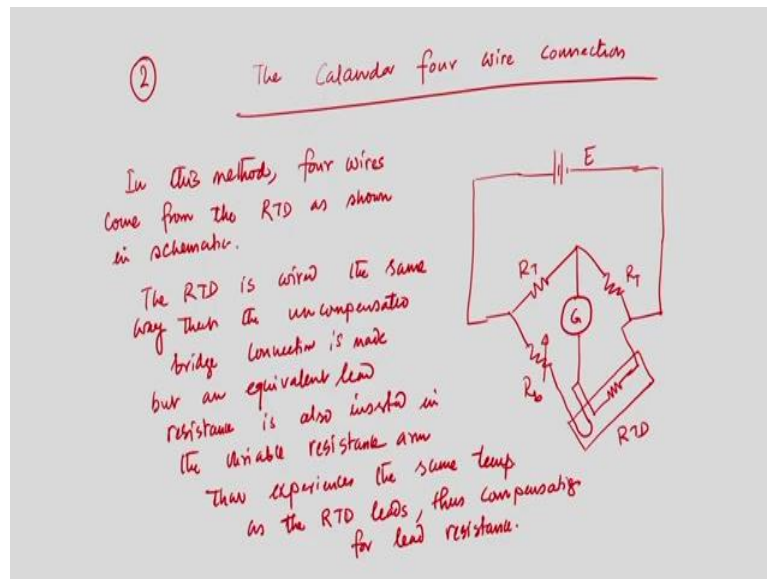 2
The Calandar four wire connection
In this method, four wires
come from the RTD as shown
in schematic.
The RTD is wired the same
way then the uncompensated
bridge connection is made
but an equivalent lead
resistance is also inserted in
the variable resistance arm
that experiences the same temp
as the RTD leads, thus compensating
for lead resistance.
E
R1
R1
G
RTD